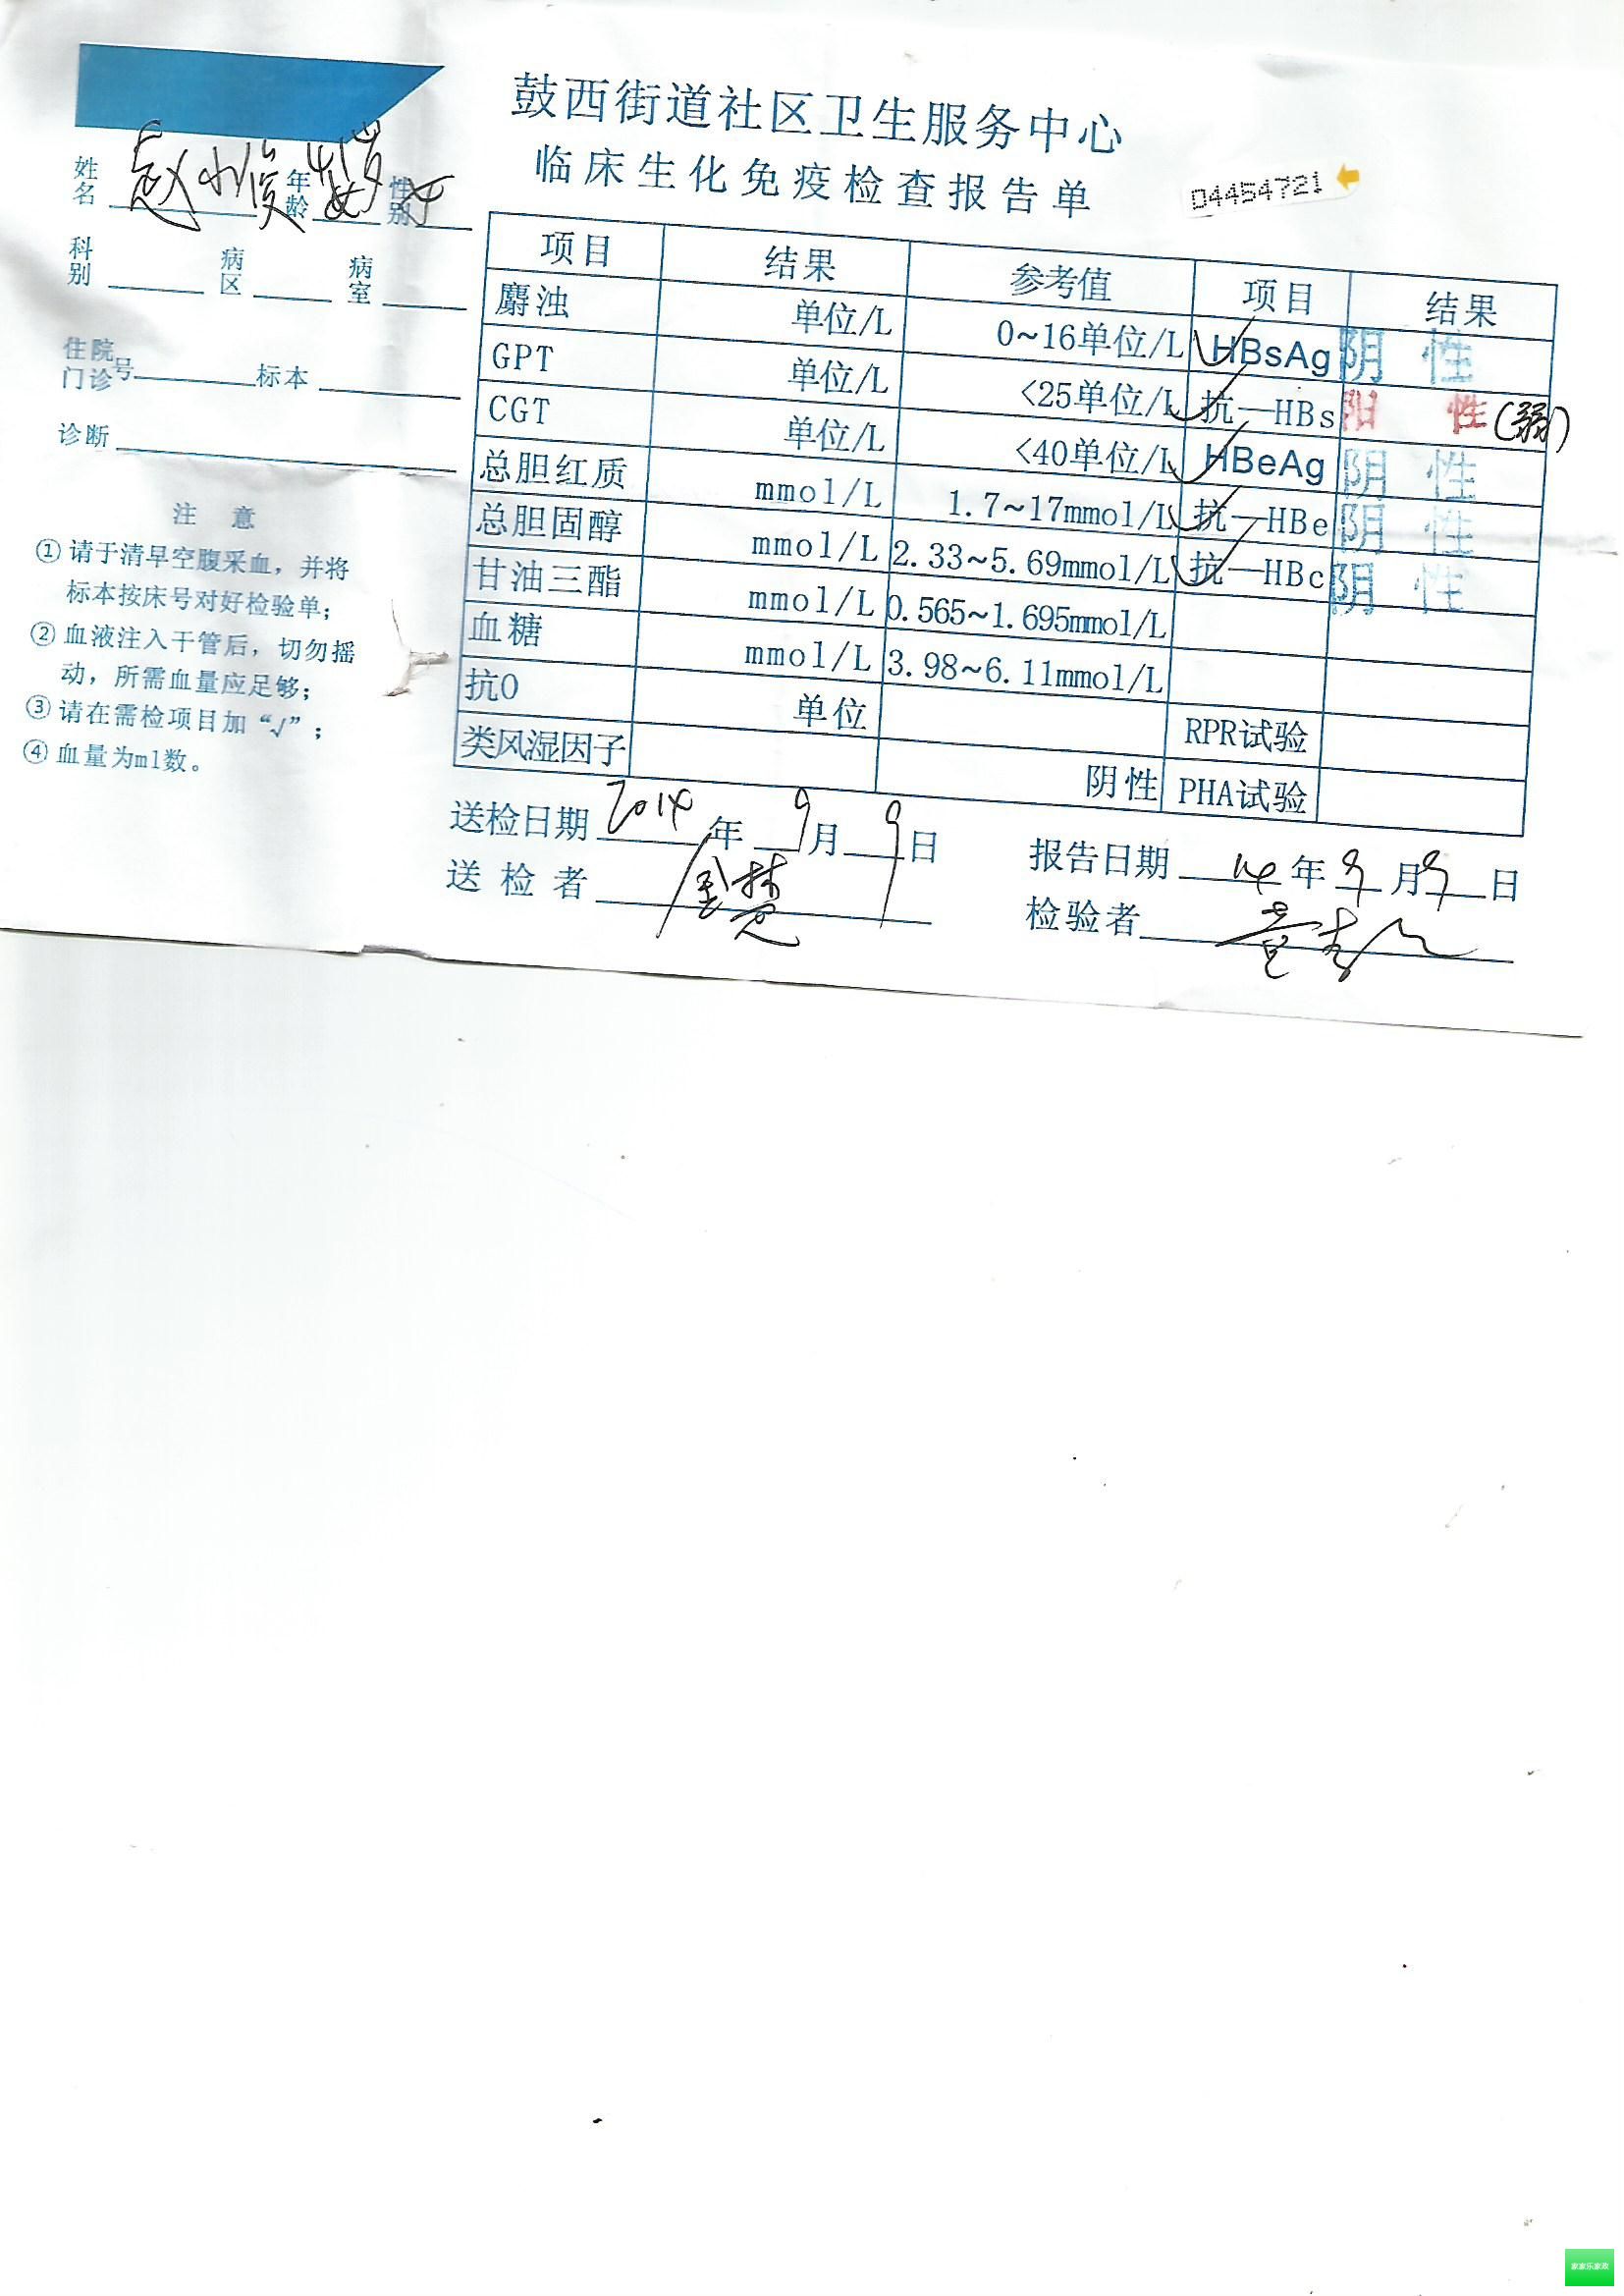 鼓西街道社区卫生服务中心
临床生化免疫检查报告单
04454721
姓名 赵小俊 年龄 性别
科别 病区 病室
住院门诊号 标本
诊断
注 意
① 请于清早空腹采血，并将
标本按床号对好检验单；
② 血液注入干管后，切勿摇
动，所需血量应足够；
③ 请在需检项目加“√”；
④ 血量为ml数。
项目 结果 参考值 项目 结果
麝浊 单位/L 0~16单位/L √ HBsAg 阴 性
GPT 单位/L <25单位/L √ 抗—HBs 阳 性 (弱)
CGT 单位/L <40单位/L √ HBeAg 阴 性
总胆红质 mmol/L 1.7~17mmol/L √ 抗—HBe 阴 性
总胆固醇 mmol/L 2.33~5.69mmol/L √ 抗—HBc 阴 性
甘油三酯 mmol/L 0.565~1.695mmol/L
血糖 mmol/L 3.98~6.11mmol/L
抗O 单位 RPR试验
类风湿因子 阴性 PHA试验
送检日期 2014 年 9 月 9 日 报告日期 14 年 9 月 9 日
送检者 检验者